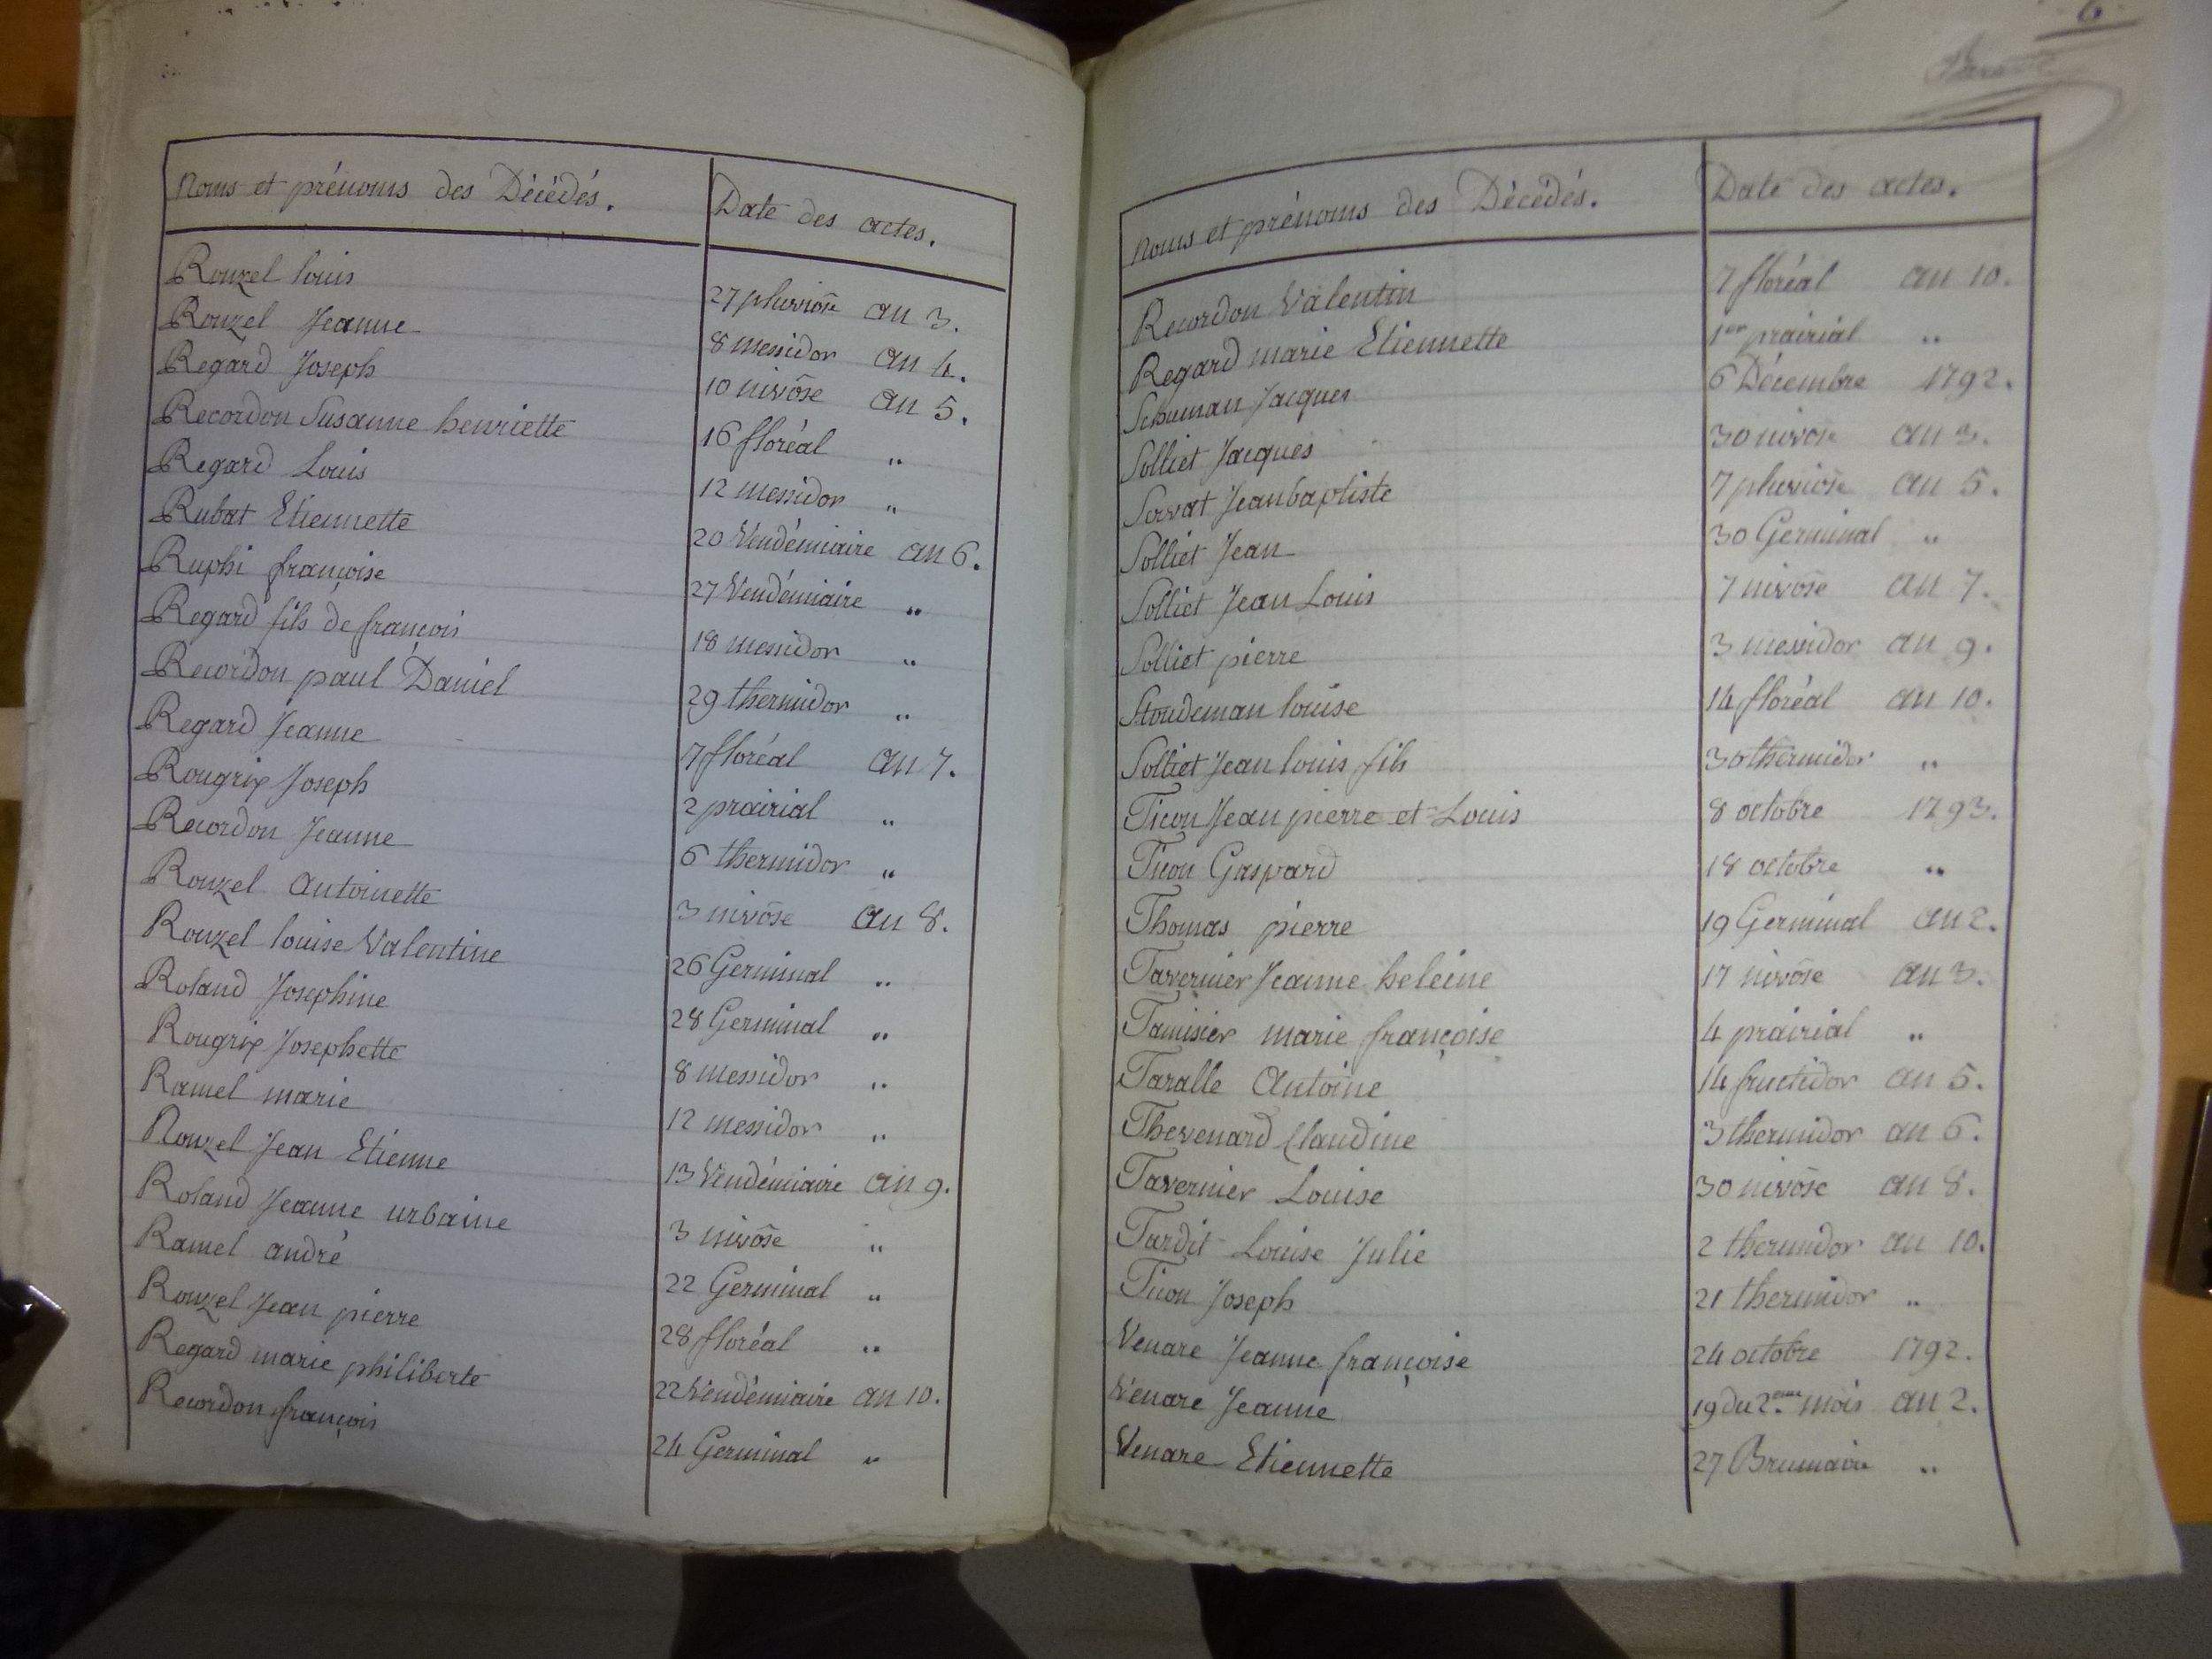 Noms et prénoms des Décédés. Date des actes.
Rouzel louis 27 pluviôse an 3.
Rouzel Jeanne 8 messidor an 4.
Regard Joseph 10 nivôse an 5.
Recordon Susanne henriette 16 floréal "
Regard Louis 12 messidor "
Rubat Etiennette 20 Vendémiaire an 6.
Ruphi françoise 27 Vendémiaire "
Regard fils de françois 18 messidor "
Recordon paul Daniel 29 thermidor "
Regard Jeanne 7 floréal an 7.
Rougrix Joseph 2 prairial "
Recordon Jeanne 6 thermidor "
Rouzel antoinette 3 nivôse an 8.
Rouzel louise Valentine 26 Germinal "
Roland Josephine 28 Germinal "
Rougrix Josephette 8 messidor "
Ramel marie 12 messidor "
Rouzel Jean Etienne 13 Vendémiaire an 9.
Roland Jeanne urbaine 3 nivôse "
Ramel andré 22 Germinal "
Rouzel Jean pierre 28 floréal "
Regard marie philiberte 22 Vendémiaire an 10.
Recordon françois 24 Germinal "
6.
Noms et prénoms des Décédés. Date des actes.
Recordon Valentin 7 floréal an 10.
Regard marie Etiennette 1er prairial "
Schuman Jacques 6 Décembre 1792.
Solliet Jacques 30 nivôse an 3.
Servat Jean baptiste 7 pluviôse an 5.
Solliet Jean 30 Germinal "
Solliet Jean Louis 7 nivôse an 7.
Solliet pierre 3 messidor an 9.
Stoudeman louise 14 floréal an 10.
Solliet Jean louis fils 30 thermidor "
Ticon Jean pierre et Louis 8 octobre 1793.
Ticon Gaspard 18 octobre "
Thomas pierre 19 Germinal an 2.
Tavernier Jeanne heleine 17 nivôse an 3.
Tamisier marie françoise 4 prairial "
Taralle Antoine 14 fructidor an 5.
Thevenard Claudine 3 thermidor an 6.
Tavernier Louise 30 nivôse an 8.
Tardit Louise Julie 2 thermidor an 10.
Ticon Joseph 21 thermidor "
Venare Jeanne françoise 24 octobre 1792.
Venare Jeanne 19 du 2.eme mois an 2.
Venare Etiennette 27 Brumaire "